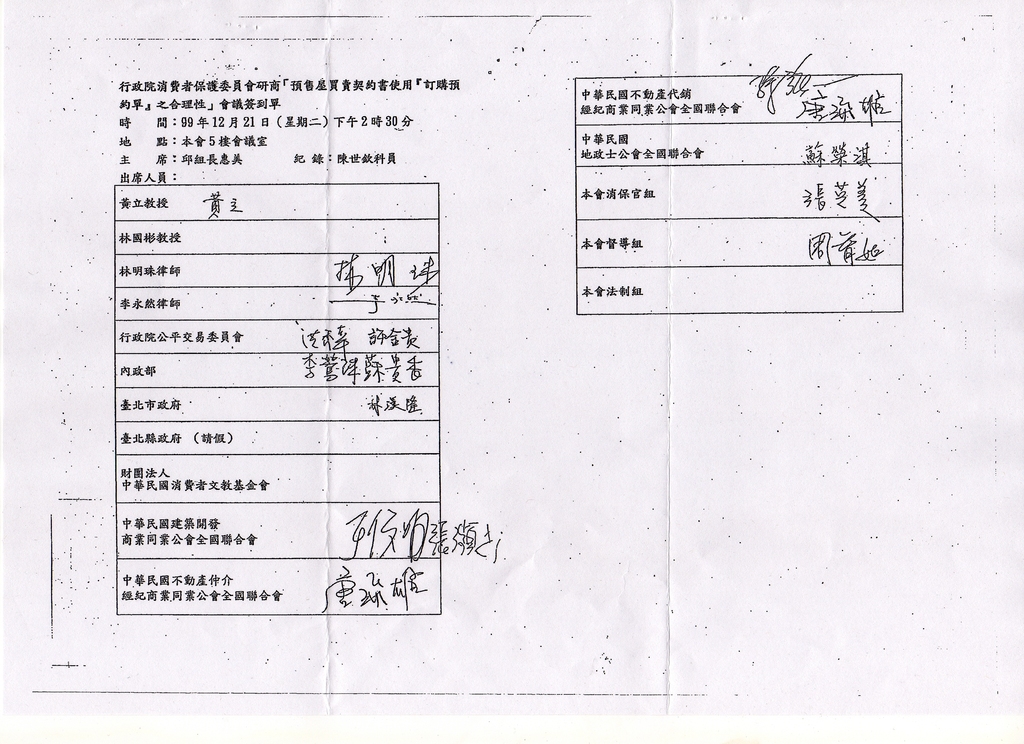 行政院消費者保護委員會研商「預售屋買賣契約書使用『訂購預
約單』之合理性」會議簽到單
時　　間：99年12月21日（星期二）下午2時30分
地　　點：本會5樓會議室
主　　席：邱組長惠美　　紀 錄：陳世欽科員
出席人員：
黃立教授　黃立
林國彬教授
林明珠律師　林明珠
李永然律師　李永然
行政院公平交易委員會　許金貴
內政部　蘇貴香
臺北市政府
臺北縣政府（請假）
財團法人
中華民國消費者文教基金會
中華民國建築開發
商業同業公會全國聯合會
中華民國不動產仲介
經紀商業同業公會全國聯合會
中華民國不動產代銷
經紀商業同業公會全國聯合會
中華民國
地政士公會全國聯合會　蘇榮淇
本會消保官組　張英美
本會督導組
本會法制組